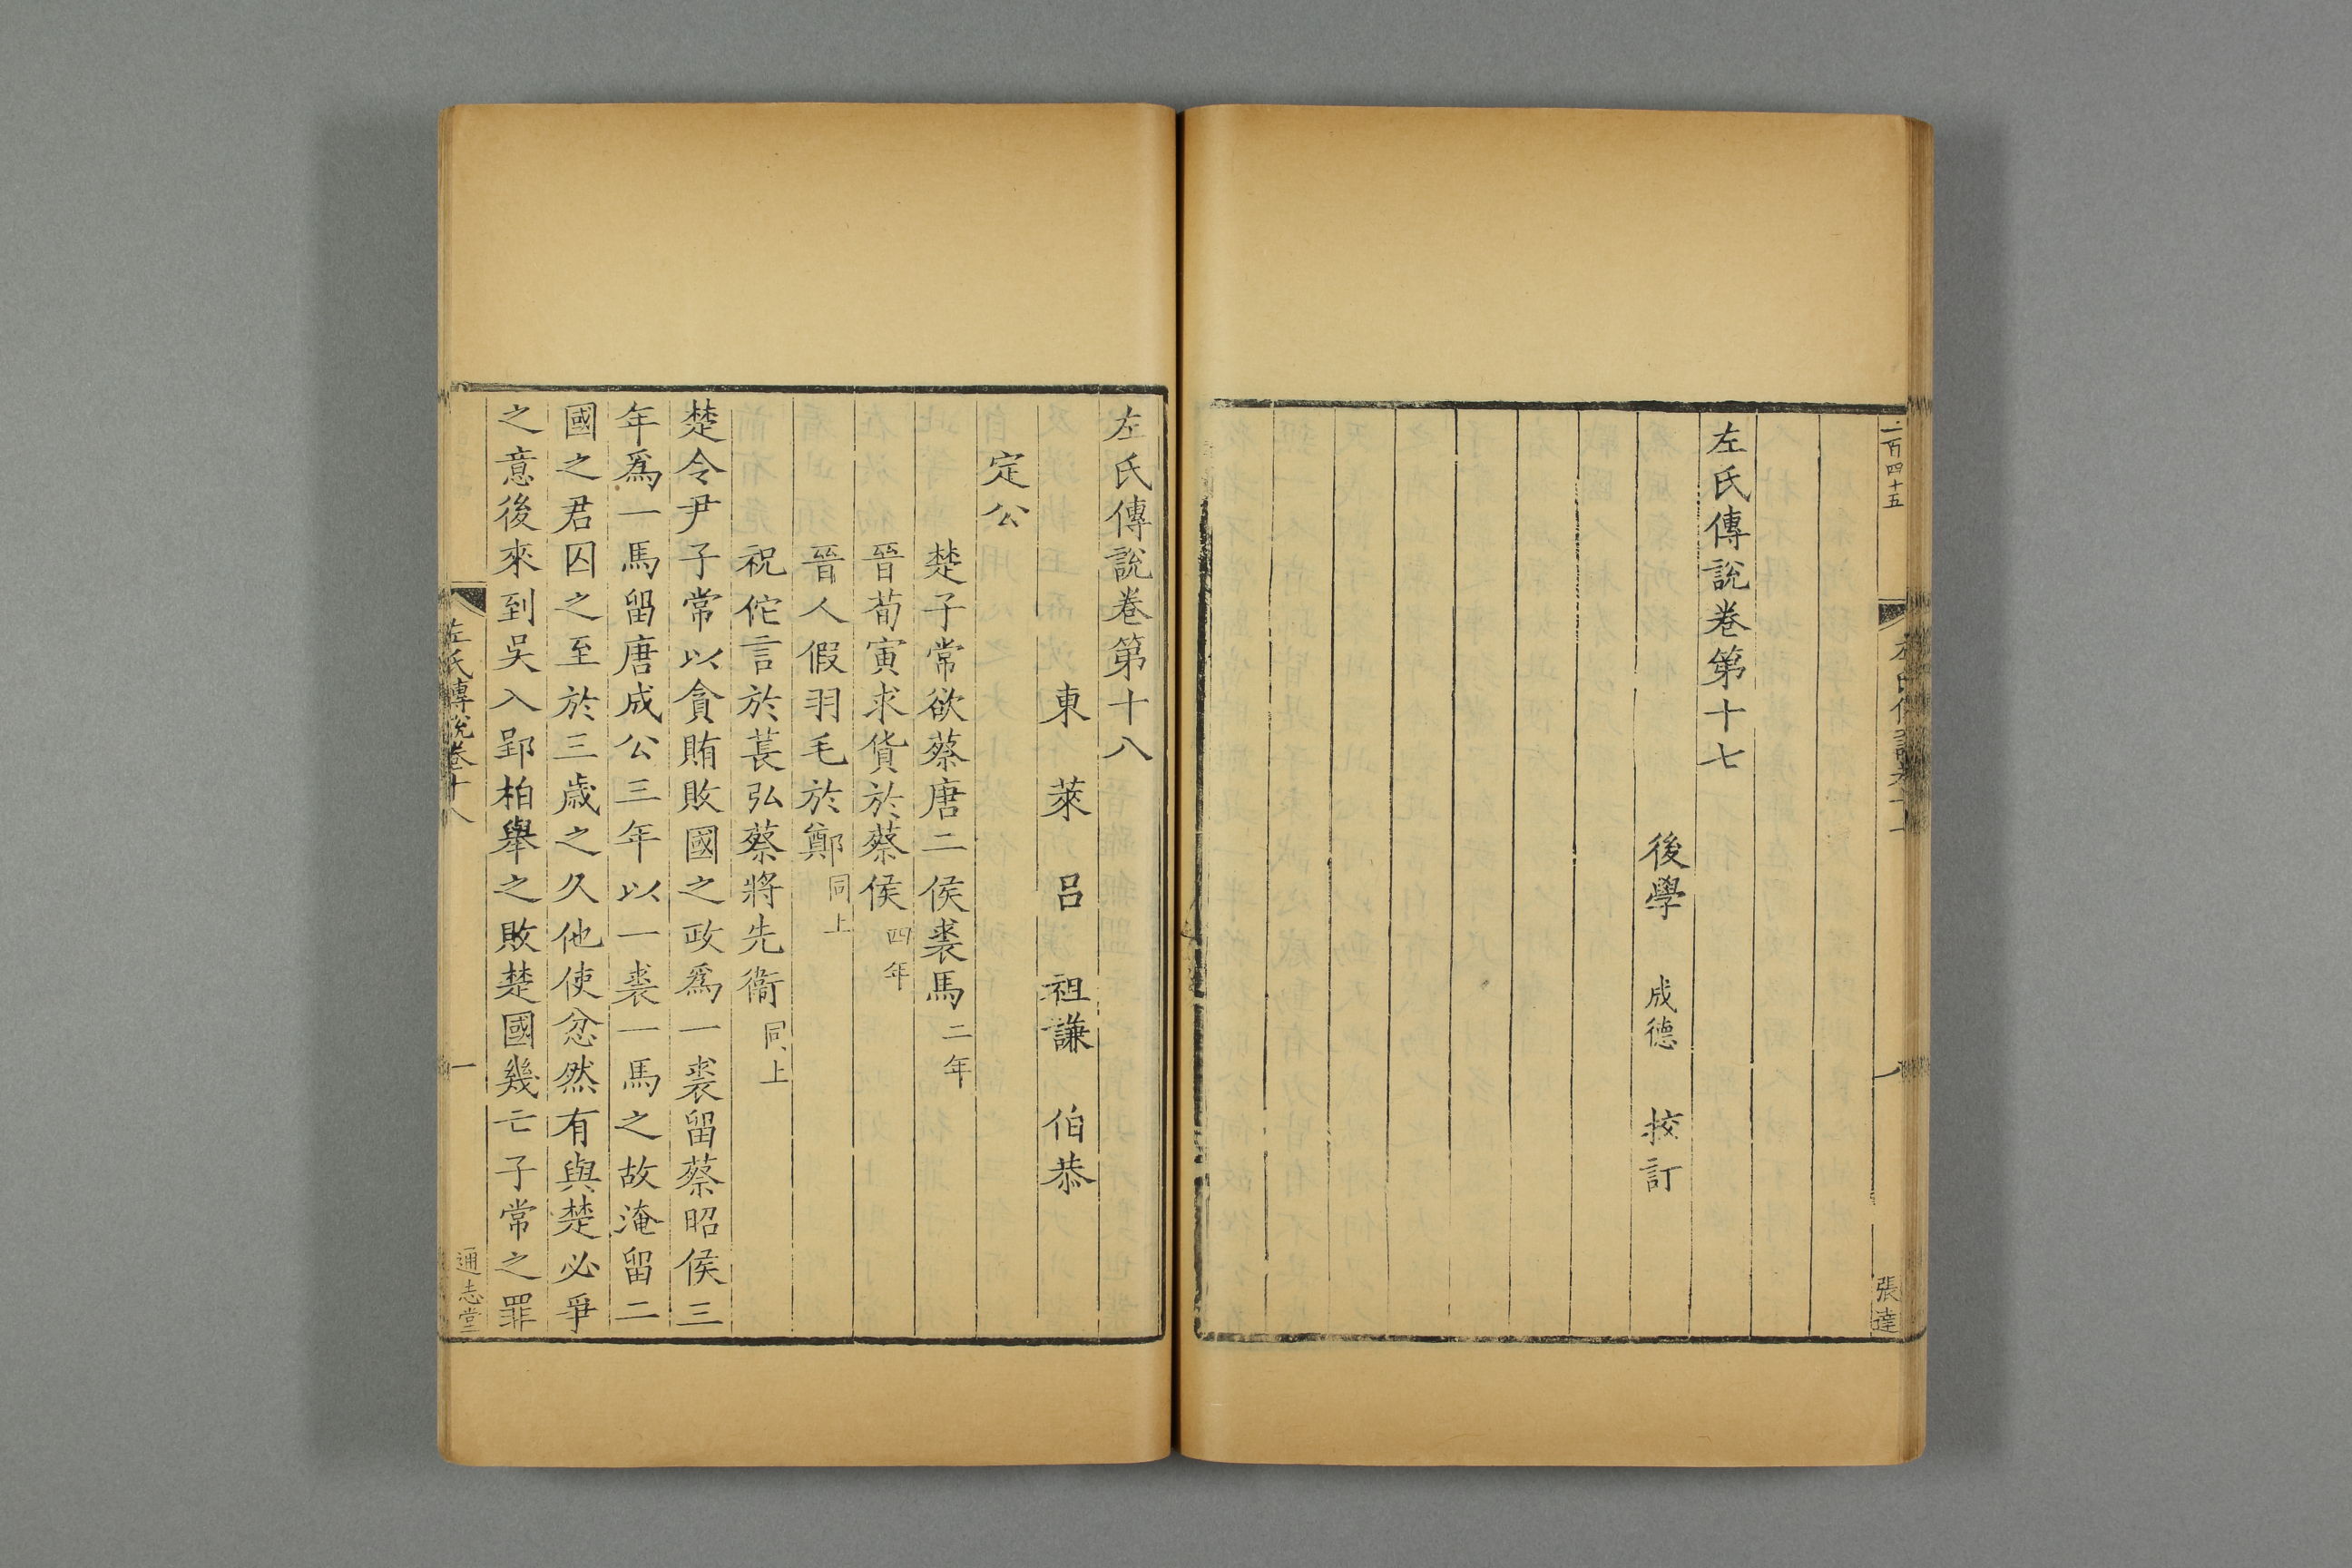 二百四十五
張達
左氏傳說卷第十七
後學 成德 挍訂
左氏傳說卷第十八
東萊呂祖謙伯恭
定公
楚子常欲蔡唐二侯裘馬二年
晉荀寅求貨於蔡侯四年
晉人假羽毛於鄭同上
祝佗言於萇弘蔡將先衛同上
楚令尹子常以貪賄敗國之政爲一裘留蔡昭侯三
年爲一馬留唐成公三年以一裘一馬之故淹留二
國之君囚之至於三歲之久他使忿然有與楚必爭
之意後來到吳入郢柏舉之敗楚國幾亡子常之罪
左氏傳說卷十八
一
通志堂